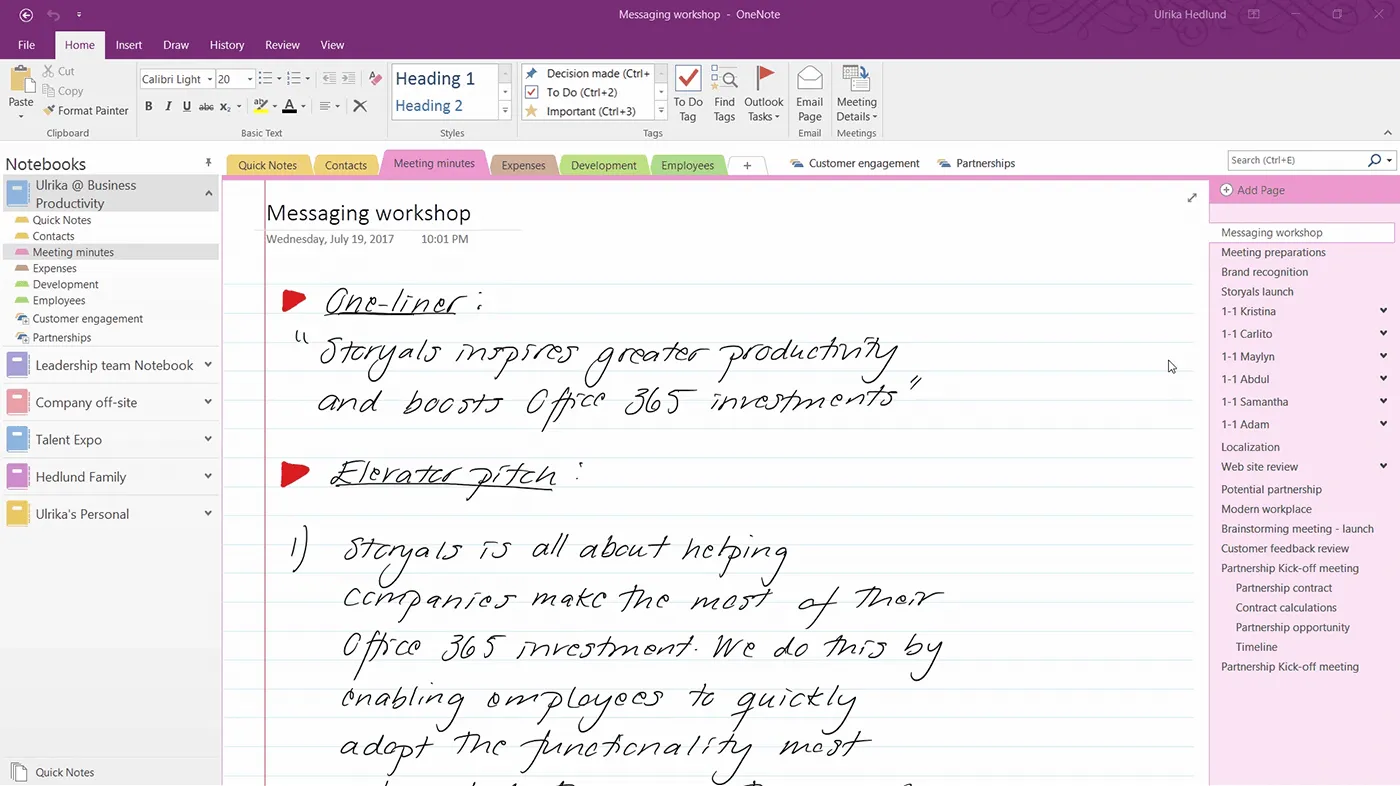 Messaging workshop - OneNote
Ulrika Hedlund
File Home Insert Draw History Review View
Paste
Cut
Copy
Format Painter
Clipboard
Calibri Light 20
B I U abc x₂ A
Basic Text
Heading 1
Heading 2
Styles
Decision made (Ctrl+
To Do (Ctrl+2)
Important (Ctrl+3)
Tags
To Do Tag
Find Tags
Outlook Tasks
Email Page
Email
Meeting Details
Meetings
Notebooks
Ulrika @ Business
Productivity
Quick Notes
Contacts
Meeting minutes
Expenses
Development
Employees
Customer engagement
Partnerships
Leadership team Notebook
Company off-site
Talent Expo
Hedlund Family
Ulrika's Personal
Quick Notes
Quick Notes Contacts Meeting minutes Expenses Development Employees + Customer engagement Partnerships
Search (Ctrl+E)
Messaging workshop
Wednesday, July 19, 2017 10:01 PM
One-liner :
"Storyals inspires greater productivity
and boosts Office 365 investments"
Elevator pitch :
1) Storyals is all about helping
companies make the most of their
Office 365 investment. We do this by
enabling employees to quickly
adopt the functionality most
Add Page
Messaging workshop
Meeting preparations
Brand recognition
Storyals launch
1-1 Kristina
1-1 Carlito
1-1 Maylyn
1-1 Abdul
1-1 Samantha
1-1 Adam
Localization
Web site review
Potential partnership
Modern workplace
Brainstorming meeting - launch
Customer feedback review
Partnership Kick-off meeting
Partnership contract
Contract calculations
Partnership opportunity
Timeline
Partnership Kick-off meeting